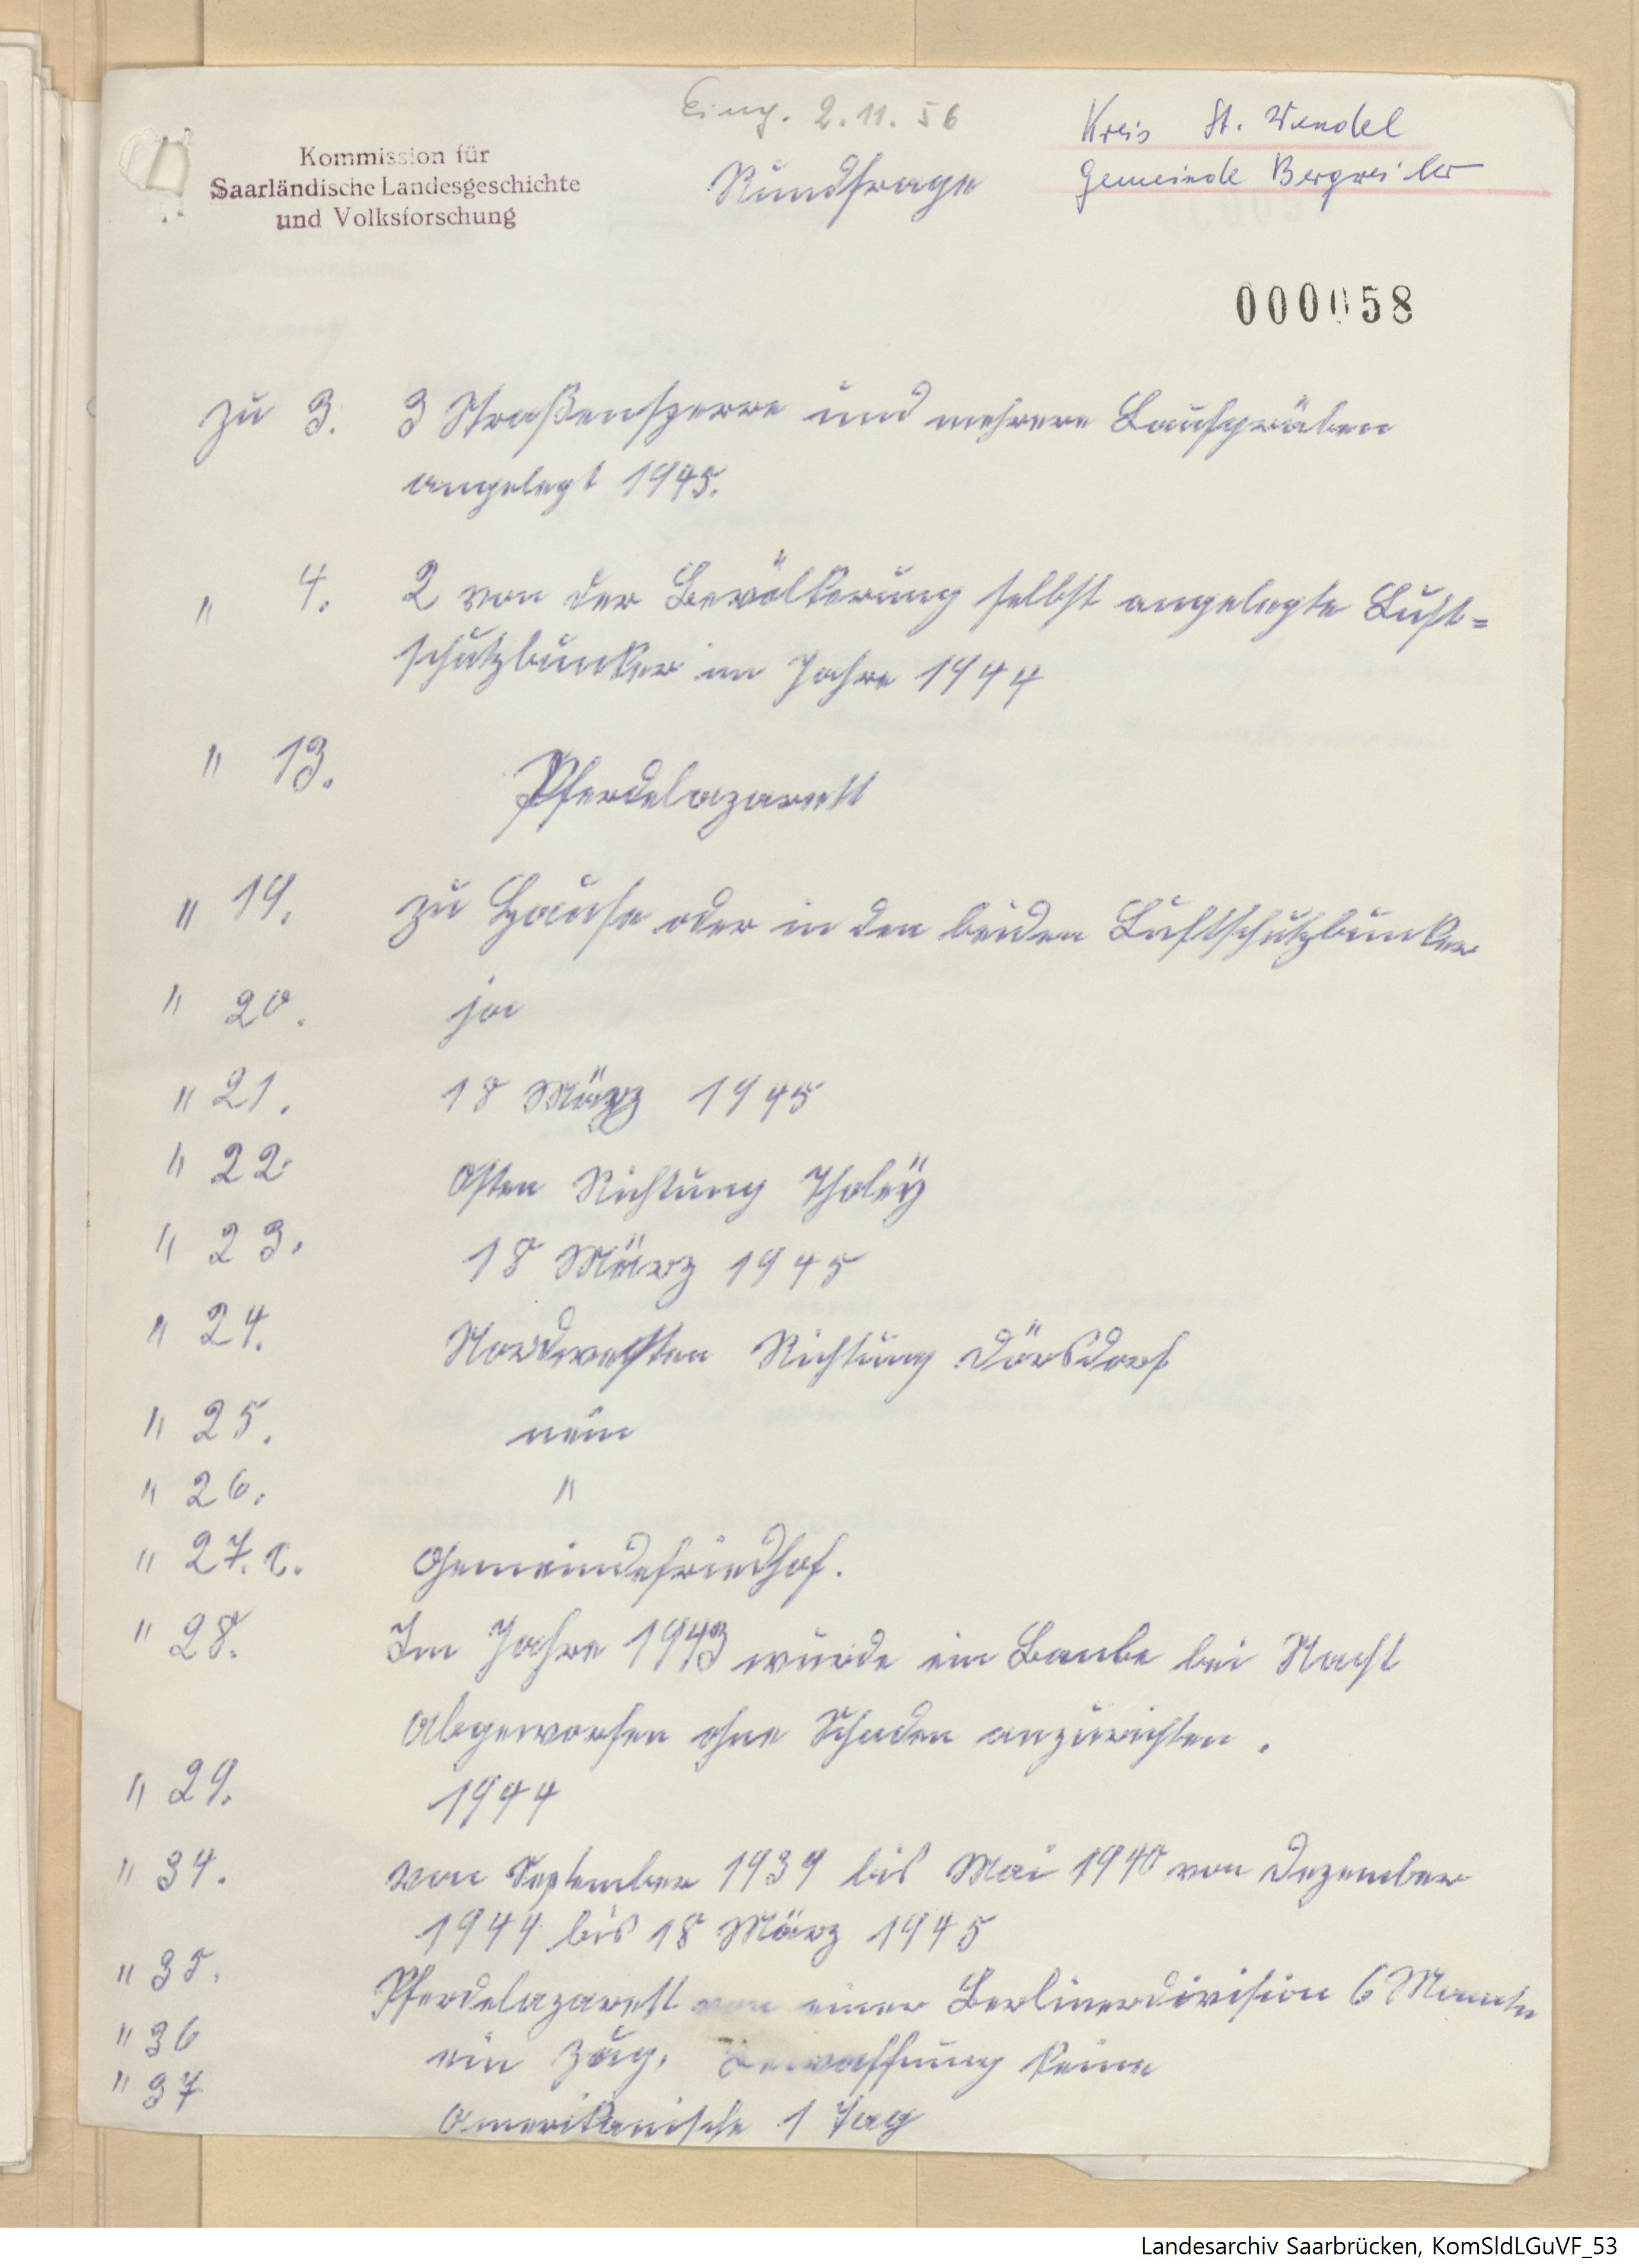 Eing. 2.11.56
Kreis St. Wendel
Kommission für
Saarländische Landesgeschichte
und Volksforschung
Rundfrage
Gemeinde Bergweiler
000058
zu 3. 3 Straßensperre und mehrere Laufgräben
angelegt 1945.
" 4. 2 von der Bevölkerung selbst angelegte Luft=
schutzbunker im Jahre 1944
" 13. Pferdelazarett
" 19. zu Hause oder in den beiden Luftschutzbunker
" 20. ja
" 21. 18 März 1945
" 22. Osten Richtung Tholey
" 23. 18 März 1945
" 24. Nordwesten Richtung Dörsdorf
" 25. nein
" 26. "
" 27. c. Gemeindefriedhof.
" 28. Im Jahre 1943 wurde ein Bombe bei Nacht
abgeworfen ohne Schaden anzurichten.
" 29. 1944
" 34. von September 1939 bis Mai 1940 von Dezember
1944 bis 18 März 1945
" 35. Pferdelazarett von einer Berlinerdivision 6 Monate
" 36 ein Zug. Bewaffnung keine
" 37 Amerikanische 1 Tag
Landesarchiv Saarbrücken, KomSldLGuVF_53